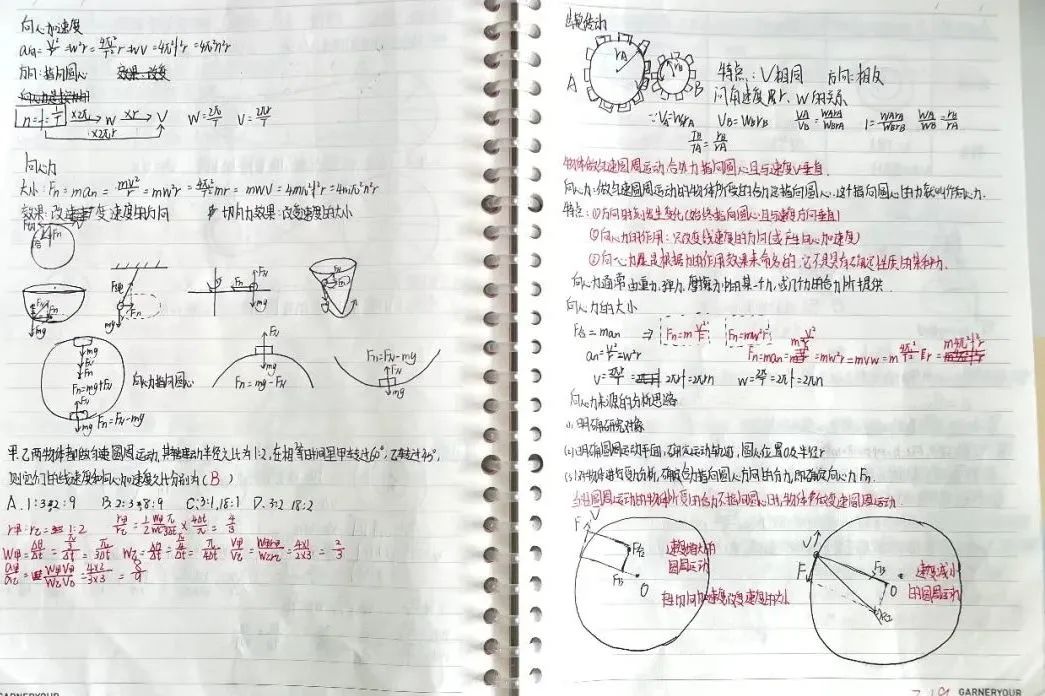 向心加速度
an= v²/r =w²r= 4π²/T² r =wv=4π²f²r=4π²n²r
方向:指向圆心
n=f=1/T ×2π→ w ×r→ V    W=2π/T    V=2πr/T
×2πr
向心力
大小:Fn=man= mv²/r =mw²r= 4π²/T² mr =mwv=4mπ²f²r=4mπ²n²r
效果:改变速度的方向    切向力效果:改变速度的大小
Fn
mg
Fn
mg
FN
mg
mg
FN
Fn
Fn=mg+FN
向心力指向圆心
Fn=FN-mg
mg
FN
mg
Fn=mg-FN
Fn=FN-mg
mg
甲、乙两物体都做匀速圆周运动,其转动半径之比为1:2,在相等时间里甲转过60°,乙转过45°,
则它们的线速度和向心加速度之比分别为(B)
A.1:3 2:9    B.2:3 8:9    C.3:1,18:1    D.3:2 18:2
r甲:r乙= 1:2
W甲=Δθ/Δt= π/3Δt    W乙=Δθ/Δt= π/4Δt    = 4×1/2×3 = 2/3
= 4×2/3×3 = 8/9
齿轮传动
A
rA
rB
B
特点:V相同    方向:相反
问角速度及r、W的关系
∵VA=WArA    VB=WBrB    VA/VB= WArA/WBrB    1= WArA/WBrB    WA/WB= rB/rA
TB/TA= rB/rA
物体做匀速圆周运动,合外力指向圆心且与速度V垂直
向心力:做匀速圆周运动的物体所受的合力总指向圆心,这个指向圆心的力就叫作向心力.
特点:①方向时刻发生变化(始终指向圆心且与速度方向垂直)
②向心力的作用:只改变线速度的方向(或产生向心加速度)
③向心力是根据力的作用效果来命名的,它不是具有确定性质的某种力.
向心力通常由重力、弹力、摩擦力中的某一个力,或几个力的合力所提供.
向心力的大小
F合=man ⇒ Fn=m v²/r    Fn=mw²r
an= v²/r =w²r    Fn=man=m v²/r =mw²r=mvw=m 4π²/T² r= m4π²f²r
V= 2πr/T = 2πrf=2πrn    w= 2π/T =2πf=2πn
向心力来源的分析思路
(1)明确研究对象
(2)明确圆周运动平面,确定运动轨道,圆心位置及半径r
(3)对物体进行受力分析,确定包指向圆心方向的合力,即确定向心力Fn.
当圆周运动的物体所受的合力不指向圆心时,物体做变速圆周运动.
V
F合
O
速度增大的
圆周运动
V
F
O
速度减小
的圆周运动
GARNERYOUR
GARNERYOUR